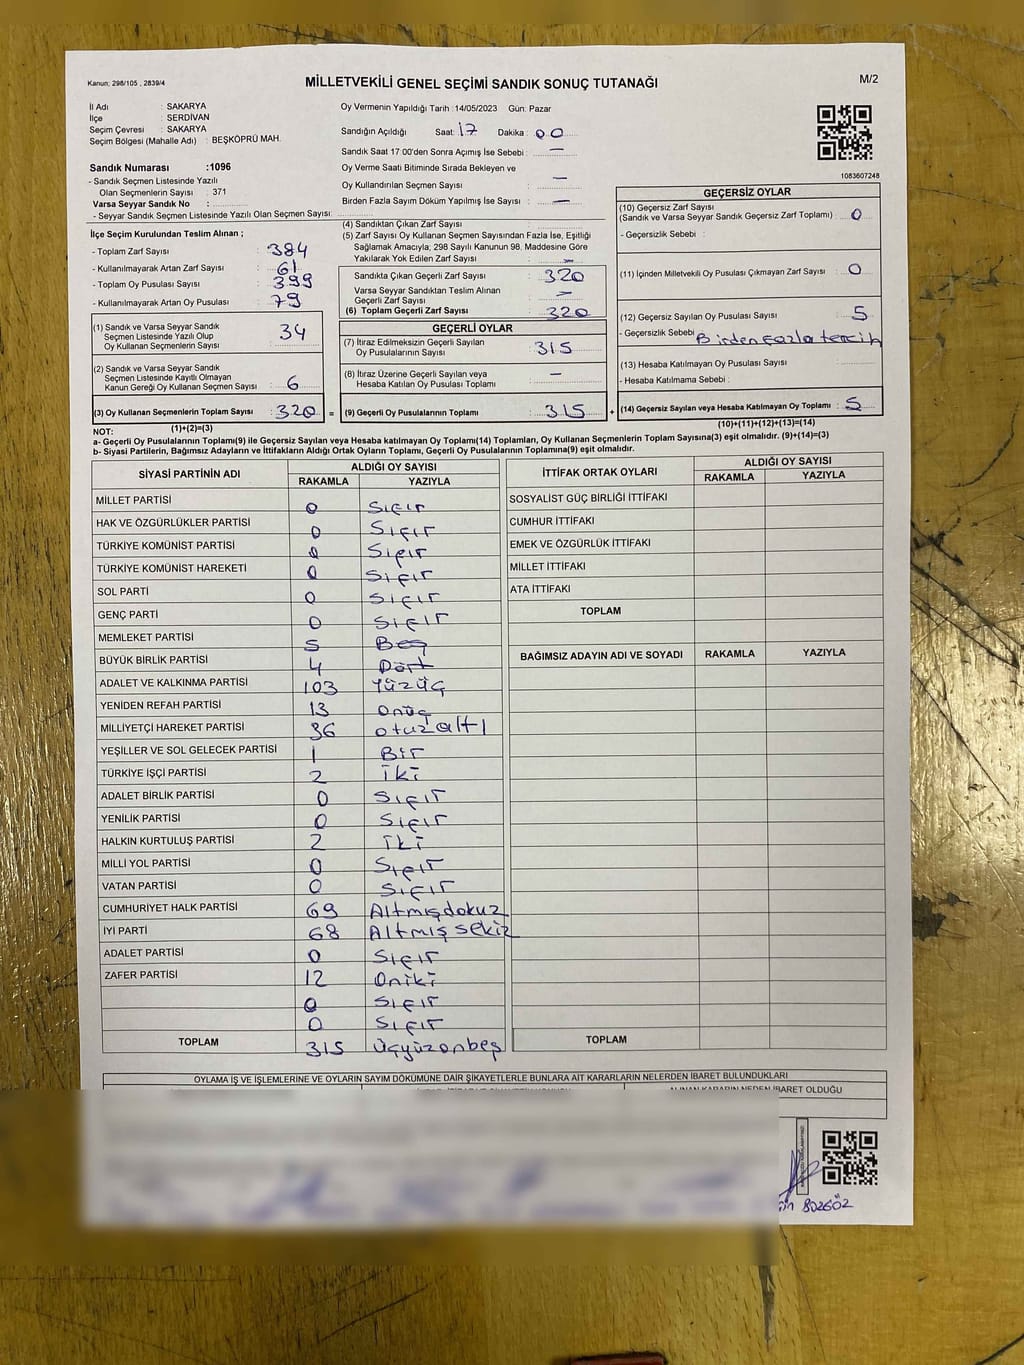 Kanun: 298/105 , 2839/4
MİLLETVEKİLİ GENEL SEÇİMİ SANDIK SONUÇ TUTANAĞI
M/2
İl Adı : SAKARYA
İlçe : SERDİVAN
Seçim Çevresi : SAKARYA
Seçim Bölgesi (Mahalle Adı) : BEŞKÖPRÜ MAH.
Oy Vermenin Yapıldığı Tarih : 14/05/2023 Gün: Pazar
Sandığın Açıldığı Saat: 17 Dakika : 00
Sandık Saat 17:00'den Sonra Açımış İse Sebebi : —
Oy Verme Saati Bitiminde Sırada Bekleyen ve
Oy Kullandırılan Seçmen Sayısı : —
Birden Fazla Sayım Döküm Yapılmış İse Sayısı : —
1083607248
Sandık Numarası :1096
- Sandık Seçmen Listesinde Yazılı
Olan Seçmenlerin Sayısı : 371
Varsa Seyyar Sandık No :
- Seyyar Sandık Seçmen Listesinde Yazılı Olan Seçmen Sayısı:
İlçe Seçim Kurulundan Teslim Alınan ;
- Toplam Zarf Sayısı : 384
- Kullanılmayarak Artan Zarf Sayısı : 61
- Toplam Oy Pusulası Sayısı : 399
- Kullanılmayarak Artan Oy Pusulası : 79
(1) Sandık ve Varsa Seyyar Sandık
Seçmen Listesinde Yazılı Olup
Oy Kullanan Seçmenlerin Sayısı : 34
(2) Sandık ve Varsa Seyyar Sandık
Seçmen Listesinde Kayıtlı Olmayan
Kanun Gereği Oy Kullanan Seçmen Sayısı : 6
(3) Oy Kullanan Seçmenlerin Toplam Sayısı : 320 =
(1)+(2)=(3)
(4) Sandıktan Çıkan Zarf Sayısı :
(5) Zarf Sayısı Oy Kullanan Seçmen Sayısından Fazla İse, Eşitliği
Sağlamak Amacıyla; 298 Sayılı Kanunun 98. Maddesine Göre
Yakılarak Yok Edilen Zarf Sayısı : —
Sandıkta Çıkan Geçerli Zarf Sayısı : 320
Varsa Seyyar Sandıktan Teslim Alınan
Geçerli Zarf Sayısı : —
(6) Toplam Geçerli Zarf Sayısı : 320
GEÇERLİ OYLAR
(7) İtiraz Edilmeksizin Geçerli Sayılan
Oy Pusulalarının Sayısı : 315
(8) İtiraz Üzerine Geçerli Sayılan veya
Hesaba Katılan Oy Pusulası Toplamı : —
(9) Geçerli Oy Pusulalarının Toplamı : 315 +
GEÇERSİZ OYLAR
(10) Geçersiz Zarf Sayısı
(Sandık ve Varsa Seyyar Sandık Geçersiz Zarf Toplamı) : 0
- Geçersizlik Sebebi :
(11) İçinden Milletvekili Oy Pusulası Çıkmayan Zarf Sayısı : 0
(12) Geçersiz Sayılan Oy Pusulası Sayısı : 5
- Geçersizlik Sebebi : Birden fazla tercih
(13) Hesaba Katılmayan Oy Pusulası Sayısı :
- Hesaba Katılmama Sebebi :
(14) Geçersiz Sayılan veya Hesaba Katılmayan Oy Toplamı : 5
(10)+(11)+(12)+(13)=(14)
NOT:
a- Geçerli Oy Pusulalarının Toplamı(9) ile Geçersiz Sayılan veya Hesaba katılmayan Oy Toplamı(14) Toplamları, Oy Kullanan Seçmenlerin Toplam Sayısına(3) eşit olmalıdır. (9)+(14)=(3)
b- Siyasi Partilerin, Bağımsız Adayların ve İttifakların Aldığı Ortak Oyların Toplamı, Geçerli Oy Pusulalarının Toplamına(9) eşit olmalıdır.
SİYASİ PARTİNİN ADI
ALDIĞI OY SAYISI
RAKAMLA YAZIYLA
MİLLET PARTİSİ 0 Sıfır
HAK VE ÖZGÜRLÜKLER PARTİSİ 0 Sıfır
TÜRKİYE KOMÜNİST PARTİSİ 0 Sıfır
TÜRKİYE KOMÜNİST HAREKETİ 0 Sıfır
SOL PARTİ 0 Sıfır
GENÇ PARTİ 0 Sıfır
MEMLEKET PARTİSİ 5 Beş
BÜYÜK BİRLİK PARTİSİ 4 Dört
ADALET VE KALKINMA PARTİSİ 103 Yüzüç
YENİDEN REFAH PARTİSİ 13 Onüç
MİLLİYETÇİ HAREKET PARTİSİ 36 otuzaltı
YEŞİLLER VE SOL GELECEK PARTİSİ 1 Bir
TÜRKİYE İŞÇİ PARTİSİ 2 İki
ADALET BİRLİK PARTİSİ 0 Sıfır
YENİLİK PARTİSİ 0 Sıfır
HALKIN KURTULUŞ PARTİSİ 2 İki
MİLLİ YOL PARTİSİ 0 Sıfır
VATAN PARTİSİ 0 Sıfır
CUMHURİYET HALK PARTİSİ 69 Altmışdokuz
İYİ PARTİ 68 Altmış sekiz
ADALET PARTİSİ 0 Sıfır
ZAFER PARTİSİ 12 Oniki
0 Sıfır
0 Sıfır
TOPLAM 315 Üçyüzonbeş
İTTİFAK ORTAK OYLARI
ALDIĞI OY SAYISI
RAKAMLA YAZIYLA
SOSYALİST GÜÇ BİRLİĞİ İTTİFAKI
CUMHUR İTTİFAKI
EMEK VE ÖZGÜRLÜK İTTİFAKI
MİLLET İTTİFAKI
ATA İTTİFAKI
TOPLAM
BAĞIMSIZ ADAYIN ADI VE SOYADI RAKAMLA YAZIYLA
TOPLAM
OYLAMA İŞ VE İŞLEMLERİNE VE OYLARIN SAYIM DÖKÜMÜNE DAİR ŞİKAYETLERLE BUNLARA AİT KARARLARIN NELERDEN İBARET BULUNDUKLARI
ALINAN KARARIN NEDEN İBARET OLDUĞU